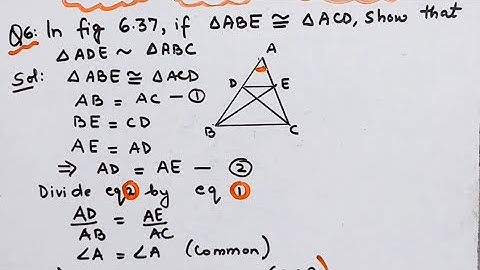 Q6: In fig 6.37, if △ABE ≅ △ACD, show that
△ADE ~ △ABC
Sol: △ABE ≅ △ACD
AB = AC — ①
BE = CD
AE = AD
⇒ AD = AE — ②
Divide eq② by eq ①
AD/AB = AE/AC
∠A = ∠A (Common)
A
D
E
B
C